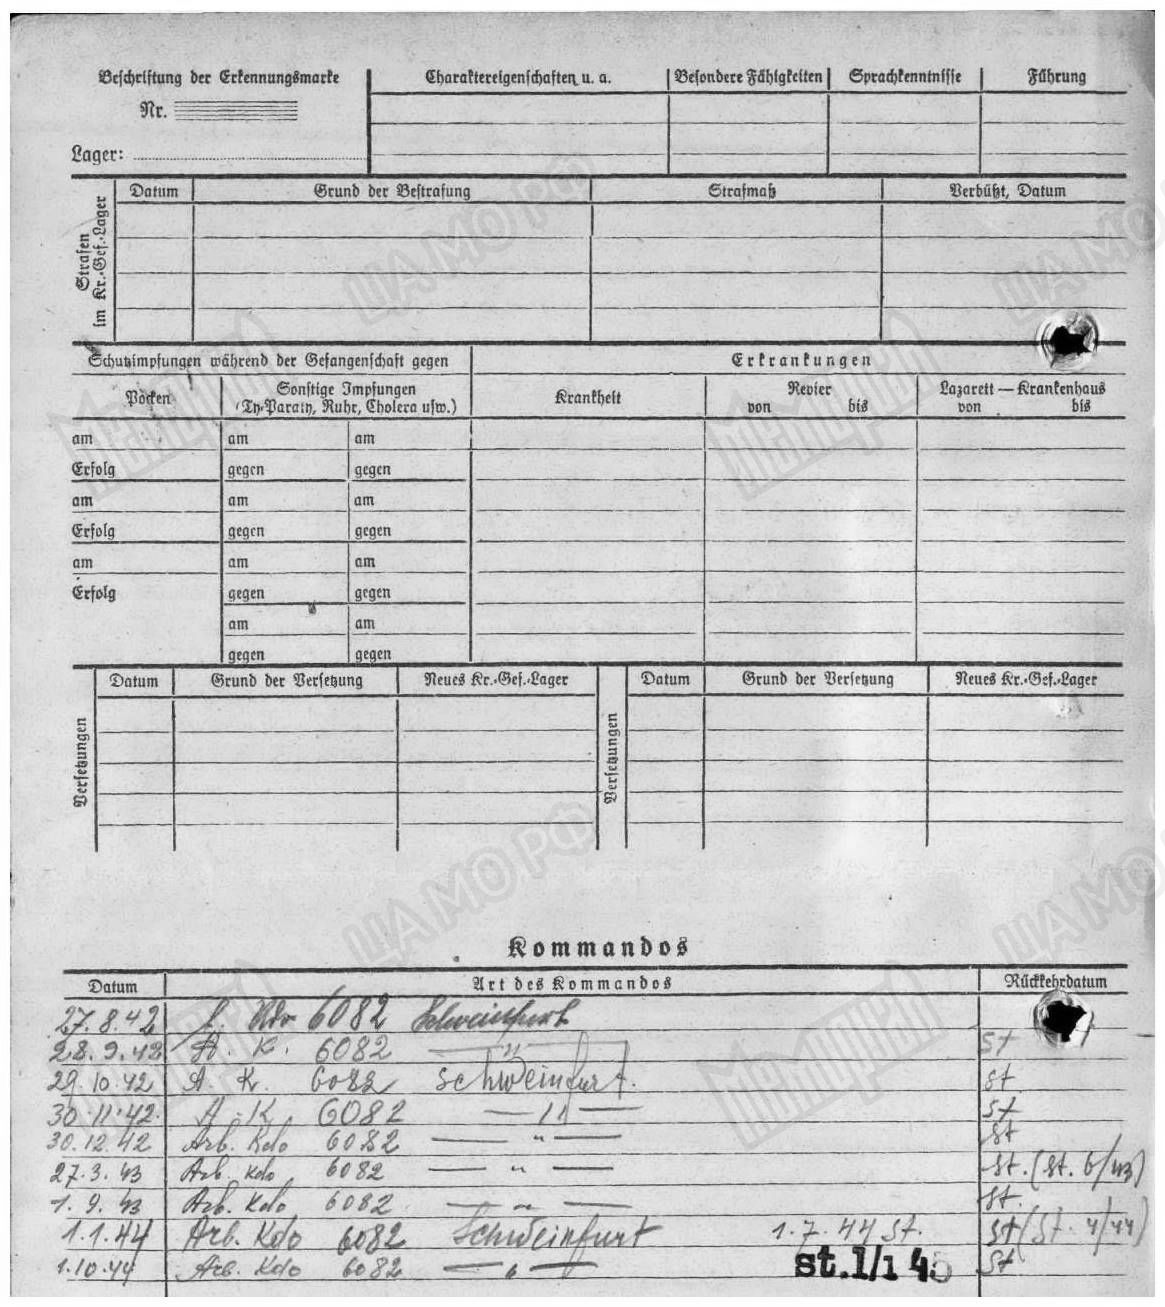 Beschriftung der Erkennungsmarke
Nr.
Lager:
Charaktereigenschaften u. a.
Besondere Fähigkeiten
Sprachkenntnisse
Führung
Strafen im Kr.-Gef.-Lager
Datum
Grund der Bestrafung
Strafmaß
Verbüßt, Datum
Schutzimpfungen während der Gefangenschaft gegen
Erkrankungen
Pocken
Sonstige Impfungen
(Ty-Paraty, Ruhr, Cholera usw.)
Krankheit
Revier
von bis
Lazarett — Krankenhaus
von bis
am am am
Erfolg gegen gegen
am am am
Erfolg gegen gegen
am am am
Erfolg gegen gegen
am am
gegen gegen
Versetzungen
Datum
Grund der Versetzung
Neues Kr.-Gef.-Lager
Versetzungen
Datum
Grund der Versetzung
Neues Kr.-Gef.-Lager
Kommandos
Datum Art des Kommandos Rückkehrdatum
27.8.42 Kdo 6082 Schweinfurt
28.9.42 A. K. 6082 — " — St
29.10.42 A. K. 6082 Schweinfurt. St
30.11.42. A. K. 6082 — " — St
30.12.42 Arb. Kdo 6082 — " — St
27.3.43 Arb. Kdo 6082 — " — St. (St. 6/43)
1.9.43 Arb. Kdo 6082 — " — St.
1.1.44 Arb. Kdo 6082 Schweinfurt 1.7.44 St. St (St. 4/44)
1.10.44 Arb. Kdo 6082 — " — St
st.1/1 45
ЦАМО РФ
ЦАМО РФ
Мемориал
Мемориал
ЦАМО РФ
ЦАМО РФ
Мемориал
Мемориал